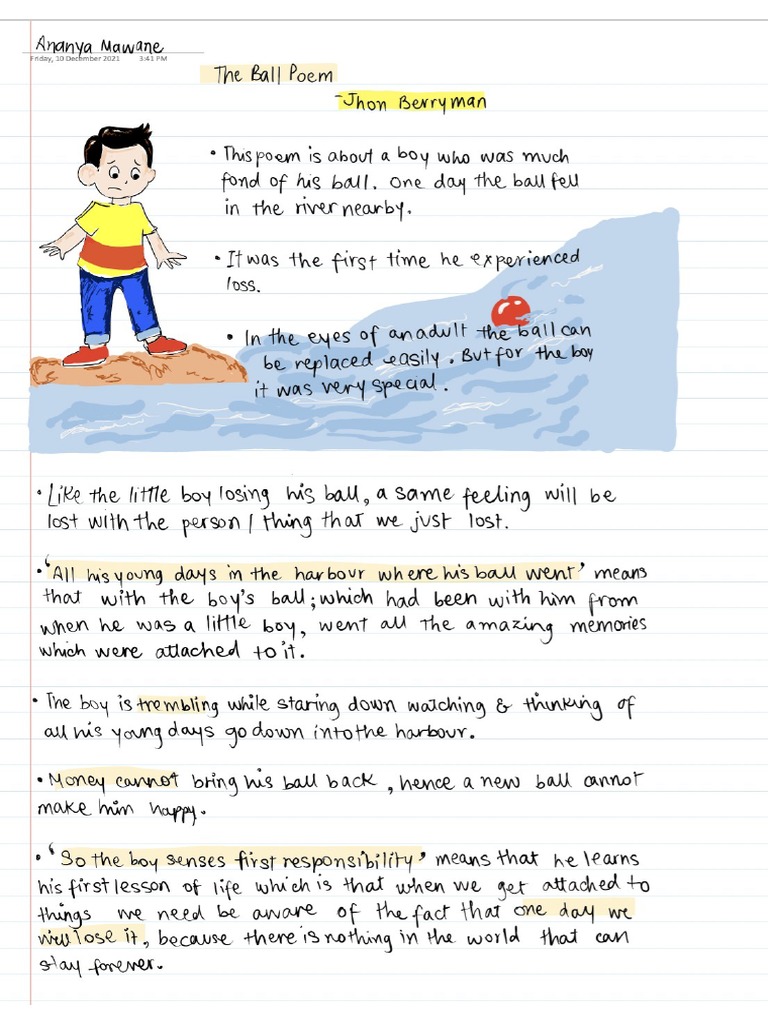 Ananya Mawane
Friday, 10 December 2021 3:41 PM
The Ball Poem
-Jhon Berryman
• This poem is about a boy who was much
fond of his ball. One day the ball fell
in the river nearby.
• It was the first time he experienced
loss.
• In the eyes of an adult the ball can
be replaced easily. But for the boy
it was very special.
• Like the little boy losing his ball, a same feeling will be
lost with the person/thing that we just lost.
• 'All his young days in the harbour where his ball went' means
that with the boy's ball; which had been with him from
when he was a little boy, went all the amazing memories
which were attached to it.
• The boy is trembling while staring down watching & thinking of
all his young days go down into the harbour.
• Money cannot bring his ball back, hence a new ball cannot
make him happy.
• 'So the boy senses first responsibility' means that he learns
his first lesson of life which is that when we get attached to
things we need be aware of the fact that one day we
will lose it, because there is nothing in the world that can
stay forever.